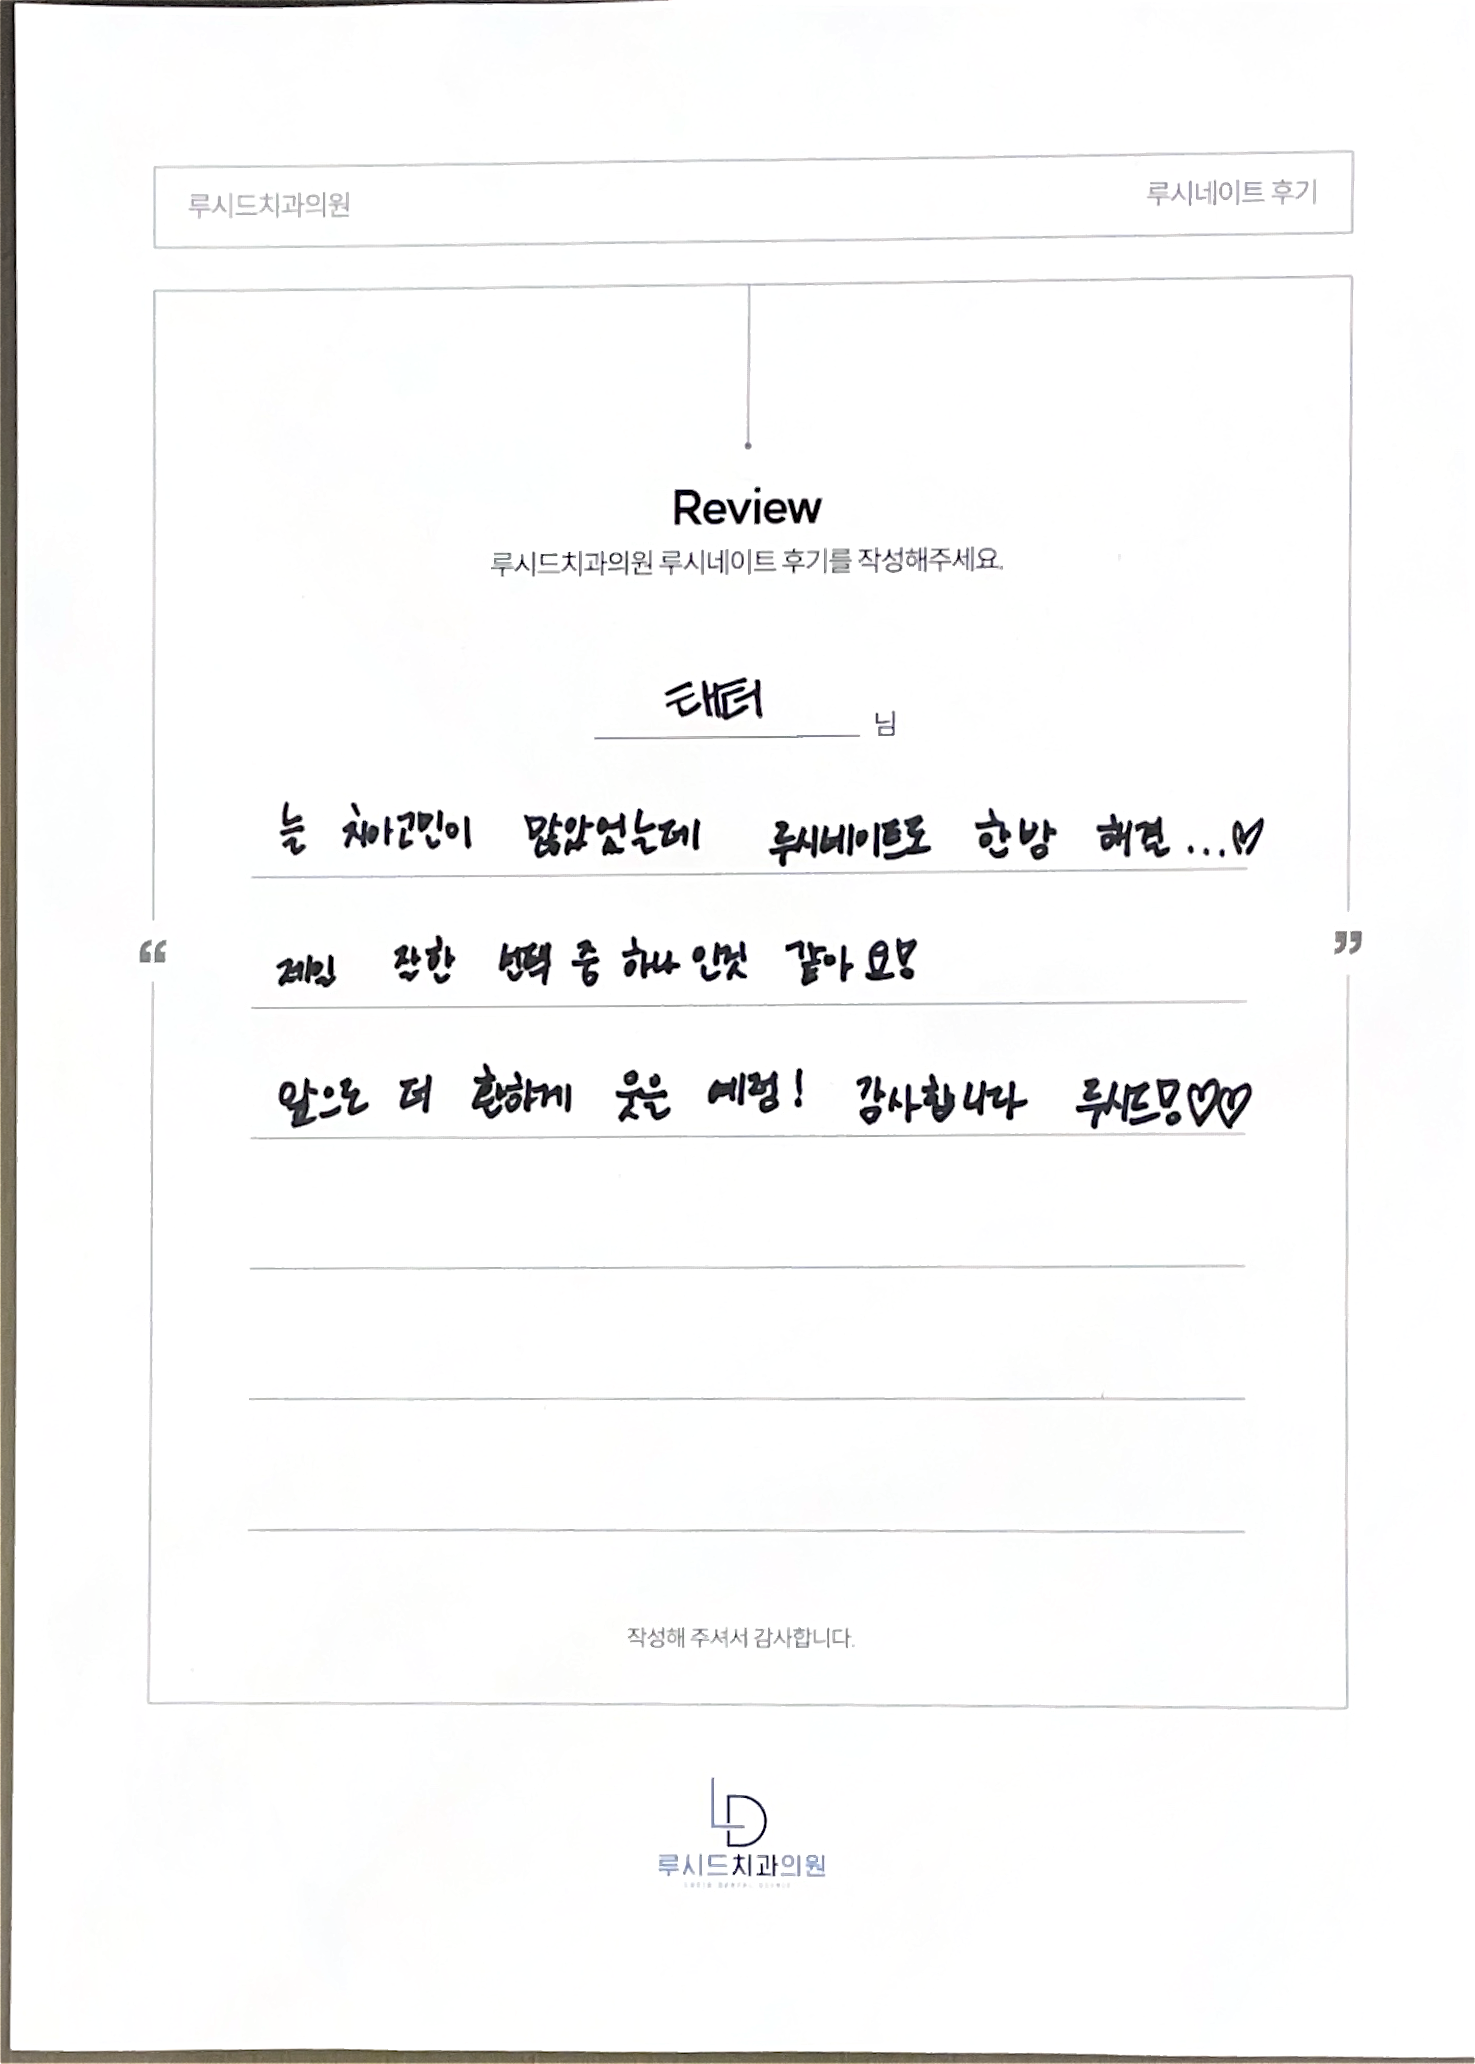 루시드치과의원
루시네이트 후기
Review
루시드치과의원 루시네이트 후기를 작성해주세요.
태터 님
늘 치아고민이 많았었는데 루시네이트로 한방 해결...♡
“ 제일 잘한 선택 중 하나 인것 같아요! ”
앞으로 더 환하게 웃을 예정! 감사합니다 루시드♡♡
작성해 주셔서 감사합니다.
LD
루시드치과의원